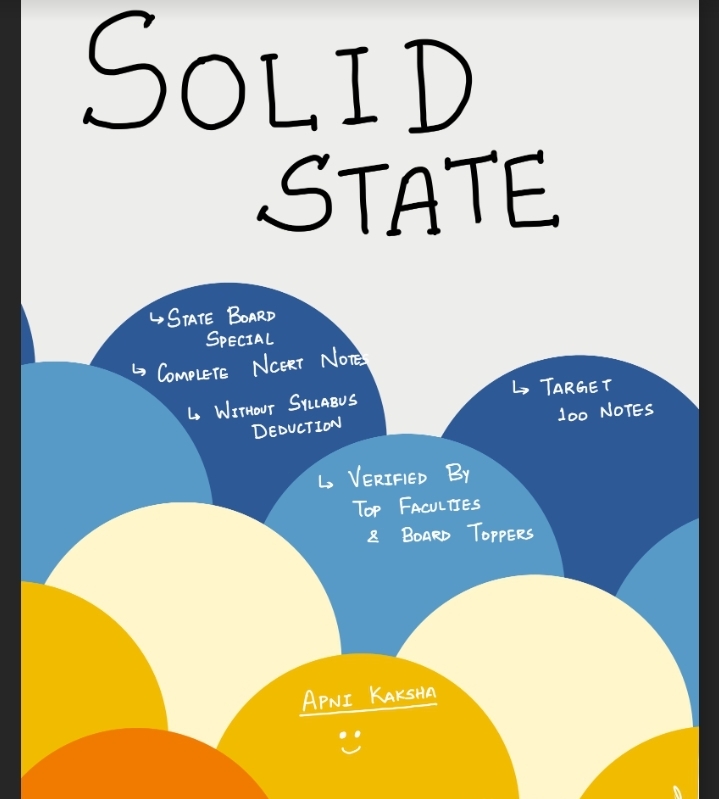 SOLID
STATE
↳ STATE BOARD
SPECIAL
↳ COMPLETE NCERT NOTES
↳ WITHOUT SYLLABUS
DEDUCTION
↳ TARGET
100 NOTES
↳ VERIFIED BY
TOP FACULTIES
& BOARD TOPPERS
APNI KAKSHA